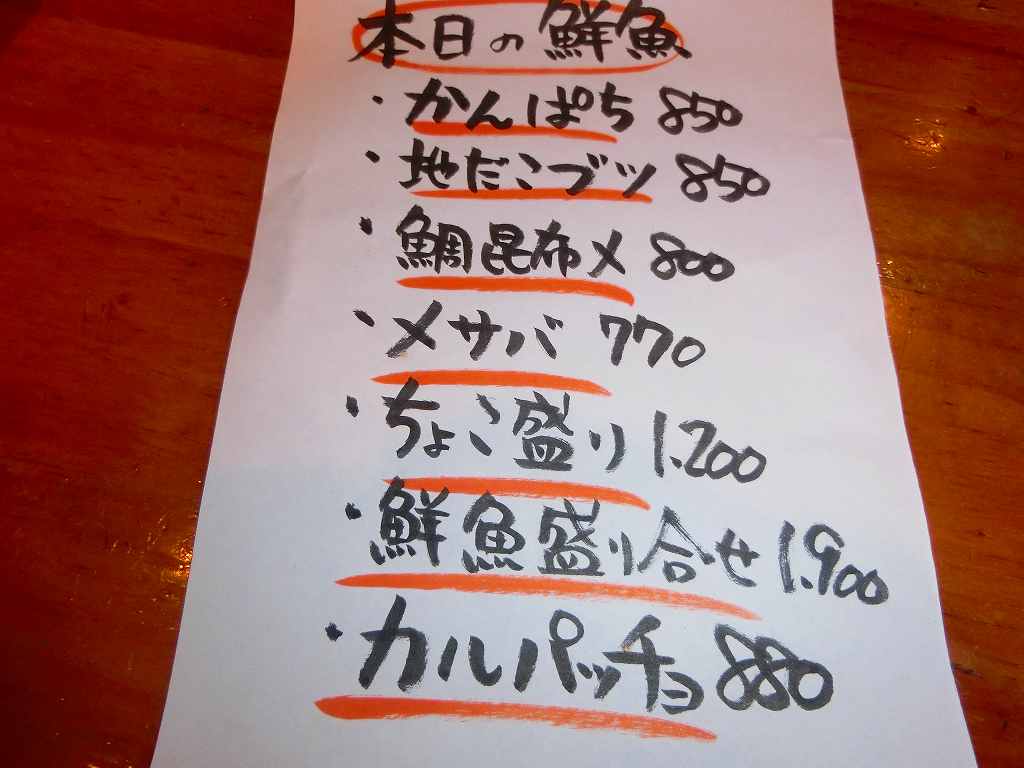 本日の鮮魚
・かんぱち 850
・地だこブツ 850
・鯛昆布〆 800
・〆サバ 770
・ちょこ盛り 1.200
・鮮魚盛り合せ 1.900
・カルパッチョ 880